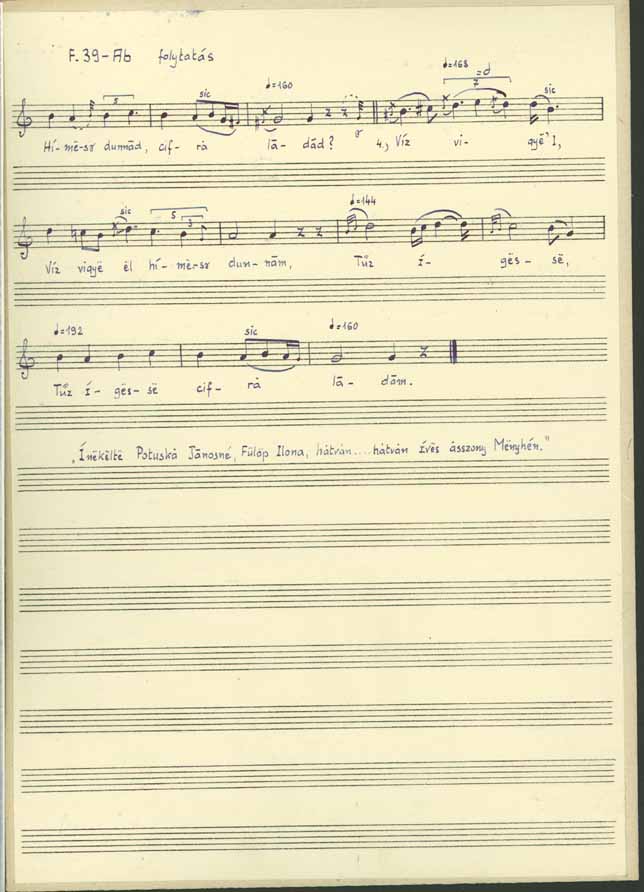 F. 39-Ab folytatás
sic ♩=160 ♩=168 =d sic
5
Hí-më-sr dunnād, cif-rȧ lā-dād? 4., Víz vi-gyë' l,
sic 5 3 ♩=144
Víz vigyë ël hí-më-sr dun-nām, Tűz í-gës-së,
♩=192 sic ♩=160
Tűz í-gës-së cif-rȧ lā-dām.
„Ínëkëltë Potuskȧ Jānosné, Fülöp Ilona, hȧtvȧn....hȧtvȧn ívës ȧsszony Mënyhén."